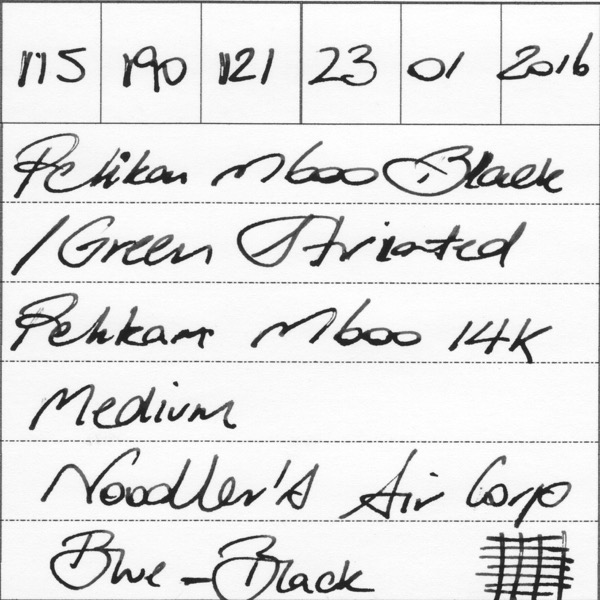 115 190 121 23 01 2016
Pelikan M600 Black
/Green Striated
Pelikan M600 14K
Medium
Noodler's Air Corp
Blue-Black